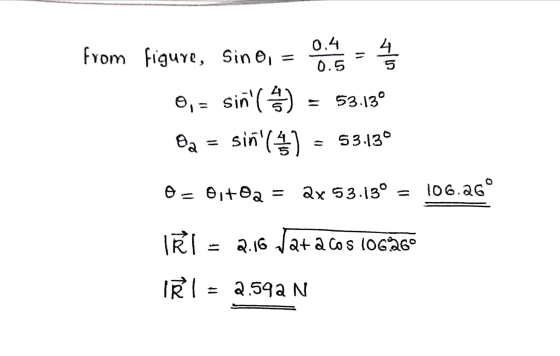 From figure, Sin θ₁ = 0.4/0.5 = 4/5
θ₁ = sin⁻¹(4/5) = 53.13°
θ₂ = sin⁻¹(4/5) = 53.13°
θ = θ₁+θ₂ = 2x 53.13° = 106.26°
|R⃗| = 2.16 √2+2 Cos 106.26°
|R⃗| = 2.592 N